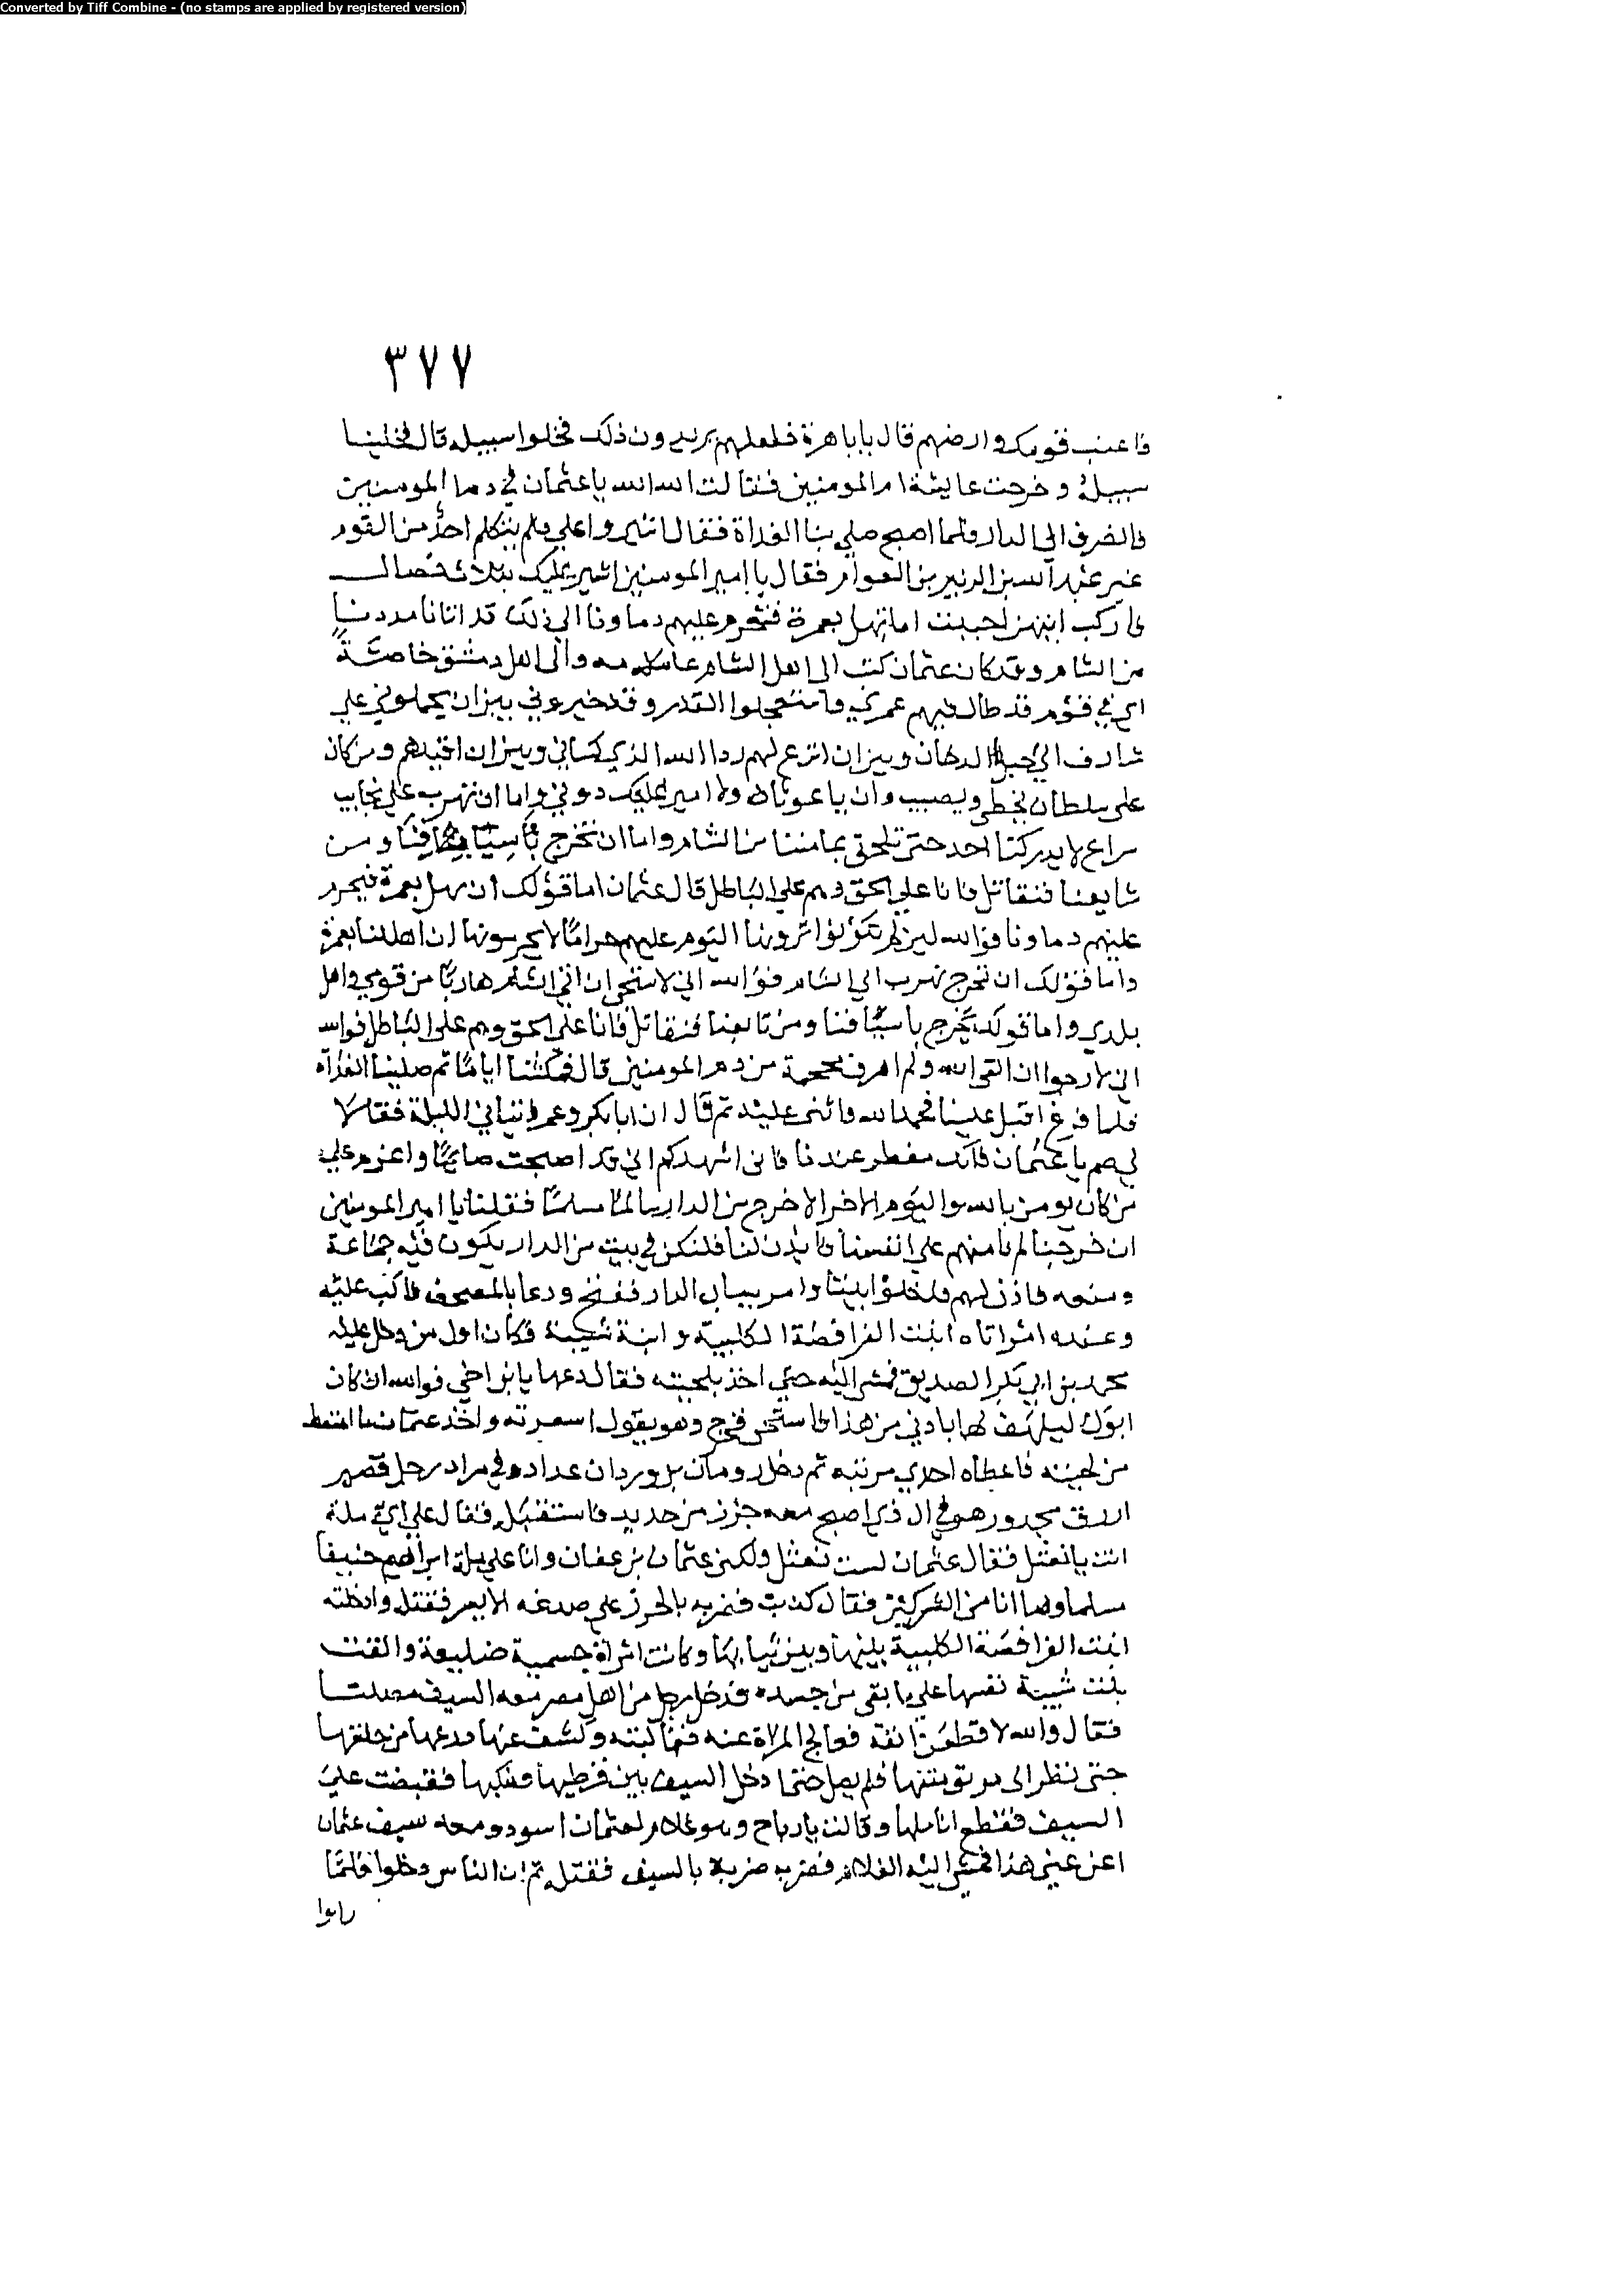 Converted by Tiff Combine - (no stamps are applied by registered version)
٣٧٧
فاعتب قومك وارضهم قال يابا هرة فلعلهم يريدون ذلك فخلوا سبيله قال فخلينا
سبيله وخرجت عايشة ام المومنين فقالت الله الله يا عثمان في دما المومنين
فانصرف الى الدار ولما اصبح صلى بنا الغداة فقال اشيروا علي فلم يتكلم احد من القوم
غير عبد الله بن الزبير بن العوام فقال يا امير المومنين اشير عليك بثلاث خصال
فاركب ايتهن احببت اما تهل بعمرة فتحرم عليهم دماونا الى ذلك قد اتانا مددنا
من الشام وقد كان عثمان كتب الى اهل الشام عامة والى اهل دمشق خاصة
اني في قوم قد طال فيهم عمري واستعجلوا القدر وقد خيروني بين ان يحملوني على
شارف الى جبل الدخان وبين ان انزع لهم ردا الله الذي كساني وبين ان اقيدهم ومن كان
على سلطان يخطي ويصيب وان يا غوثاه ولا امير عليكم دوني واما ان تهرب على نجايب
سراع لا يدركنا احد حتى نلحق بمامننا من الشام واما ان نخرج باسيافنا ومن
شايعنا فنقاتل فانا على الحق وهم على الباطل قال عثمان اما قولك ان نهل بعمرة فيحرم
عليهم دماونا فوالله لين لم يكونوا يرونها اليوم عليهم حراما لا يحرمونها ان اهللنا بعمرة
واما قولك ان نخرج نهرب الى الشام فوالله اني لاستحي ان اتي الشام هاربا من قومي واهل
بلدي واما قولك نخرج باسيافنا ومن تابعنا فنقاتل فانا على الحق وهم على الباطل فوالله
اني لارجوا ان القى الله ولم اهرق محجمة من دم المومنين قال فمكثنا اياما ثم صلينا الغداة
فلما فرغ اقبل علينا فحمد الله واثنى عليه ثم قال ان ابا بكر وعمر اتياني الليلة فقالا
لي صم يا عثمان فانك مفطر عندنا فاني اشهدكم اني قد اصبحت صايما واعزم على
من كان يومن بالله واليوم الاخر الا خرج من الدار سالما مسلما فقلنا يا امير المومنين
ان خرجنا لم نامنهم على انفسنا فاذن لنا فلنكن في بيت من الدار يكون فيه جماعة
ومنعه فاذن لهم فدخلوا بيتا وامر بباب الدار ففتح ودعا بالمصحف فاكب عليه
وعنده امراتاه ابنت الفرافصة الكلبية وابنة شيبة فكان اول من دخل عليه
محمد بن ابي بكر الصديق فمشى اليه حتى اخذ بلحيته فقال دعها يا بن اخي فوالله ان كان
ابوك ليلهف لها بادني من هذا فاستحى فخرج وهو يقول اسعرته واخذ عثمان ما امتعط
من لحيته فاعطاه احدى مرتيه ثم دخل رومان بن وردان عداده في مراد رجل قصير
ازرق مجدور هو في ال ذي اصبح معه جرز من حديد فاستقبله فقال على اي ملة
انت يا نعثل فقال عثمان لست نعثل ولكني عثمان بن عفان وانا على ملة ابراهيم حنيفا
مسلما وما انا من المشركين فقال كذبت فضربه بالجرز على صدغه الايسر فقتله وادخلته
ابنت الفرافصة الكلبية بينها وبين ثيابها وكانت امراة جسيمة ضليعة والقت
بنت شيبة نفسها على ما بقي من جسده فدخل رجل من اهل مصر معه السيف مصلتا
فقال والله لاقطعن انفه فعالج المراة عنه فغالبته وكشف عنها درعها من خلفها
حتى نظر الى متنها فلم يصل حتى ادخل السيف بين قرطيها ومنكبها فقبضت على
السيف فقطع اناملها وقالت يا رباح وهو غلام لعثمان اسود ومعه سيف عثمان
اعن عني هذا فمشى اليه الغلام فضربه ضربة بالسيف فقتله ثم ان الناس دخلوا فلما
راوا